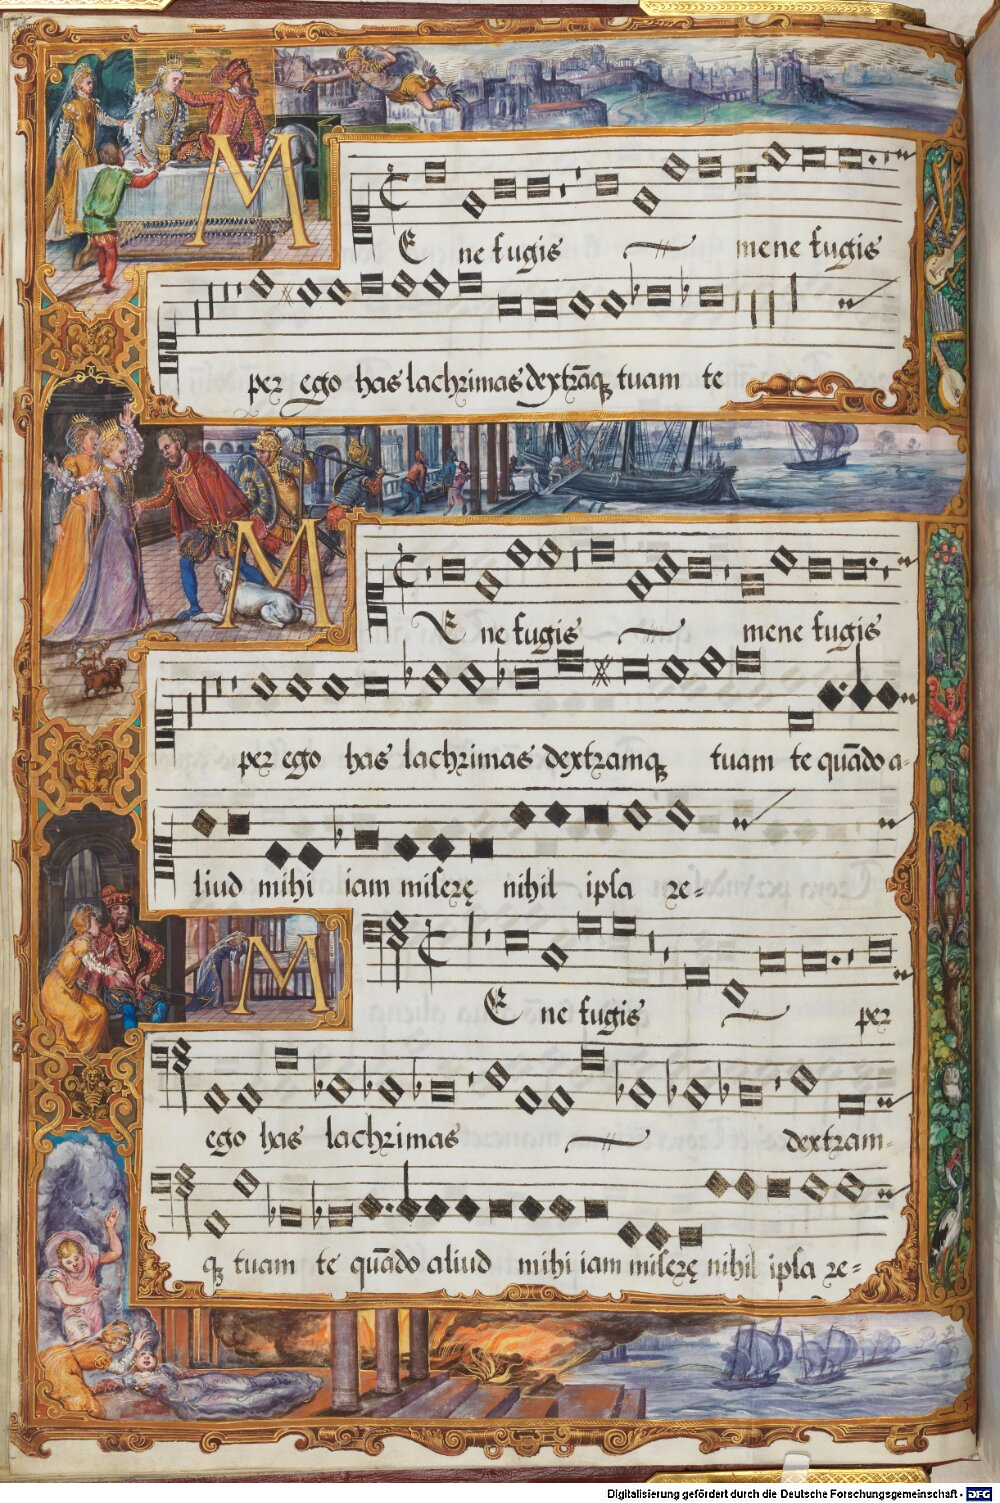 ME ne fugis mene fugis
per ego has lachrimas dextrāq; tuam te
ME ne fugis mene fugis
per ego has lachrimas dextramq; tuam te quādo a-
liud mihi iam miserę nihil ipsa re-
ME ne fugis per
ego has lachrimas dextram-
q; tuam te quādo aliud mihi iam miserę nihil ipsa re-
Digitalisierung gefördert durch die Deutsche Forschungsgemeinschaft - DFG